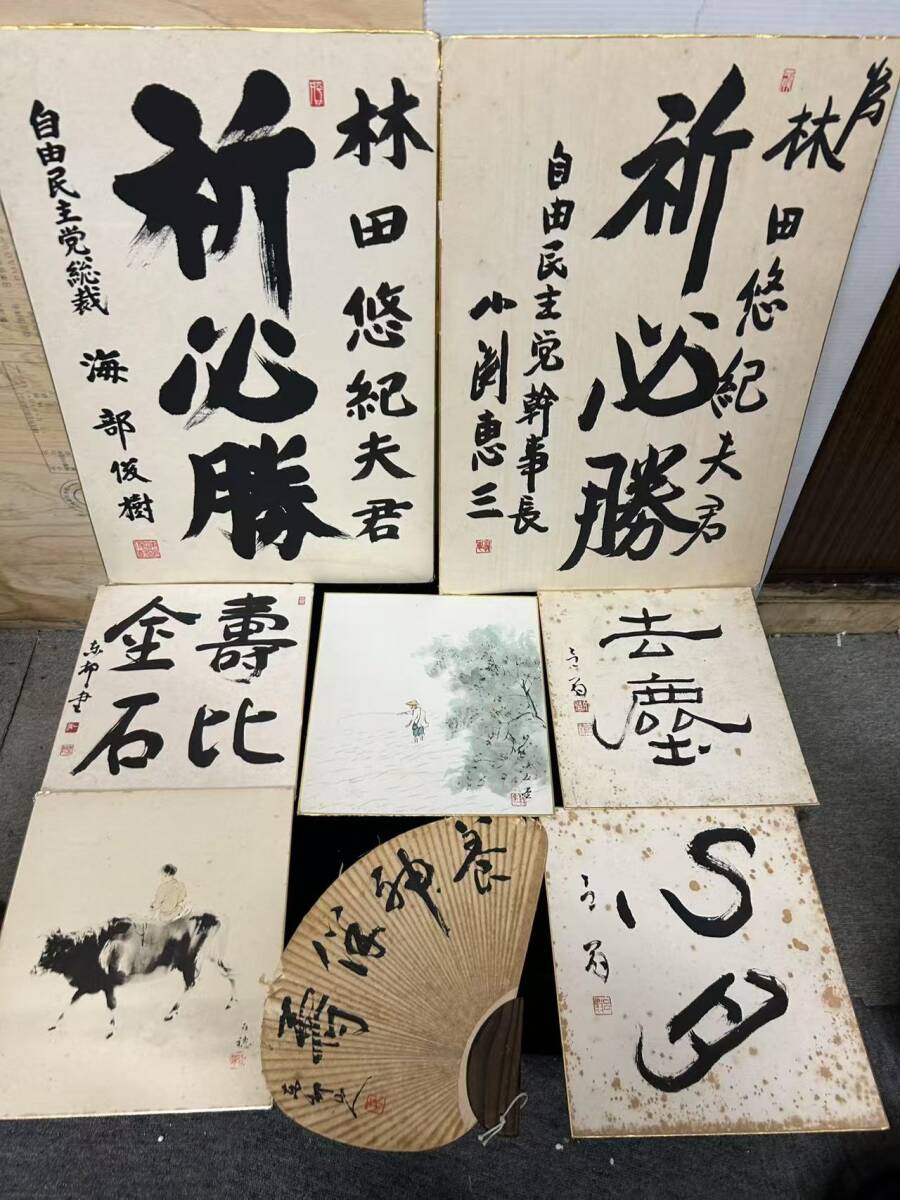 林田悠紀夫君
祈必勝
自由民主党総裁
海部俊樹
為
林田悠紀夫君
祈必勝
自由民主党幹事長
小渕恵三
壽比
金石
去塵
養神
壽
心月